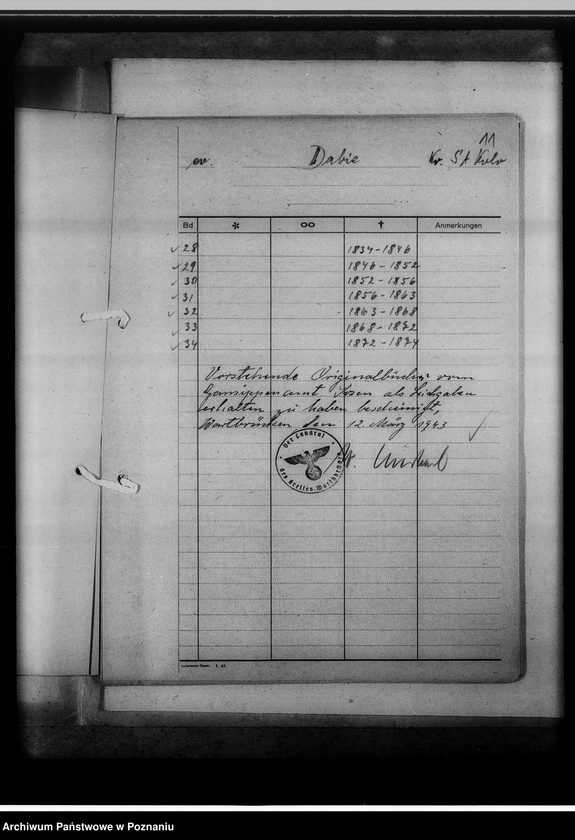 11
ev. Dabie Kr. S'A Kolo
Bd * ∞ † Anmerkungen
✓ 28 1834-1846
✓ 29 1846-1852
✓ 30 1852-1856
✓ 31 1856-1863
✓ 32 1863-1868
✓ 33 1868-1872
✓ 34 1872-1874
Vorstehende Originalbücher vom
Gausippenamt Posen als Leihgaben
erhalten zu haben bescheinigt,
Wartbrücken, den 12. März 1943
Der Landrat
des Kreises Warthbrücken
I. 43.
Archiwum Państwowe w Poznaniu